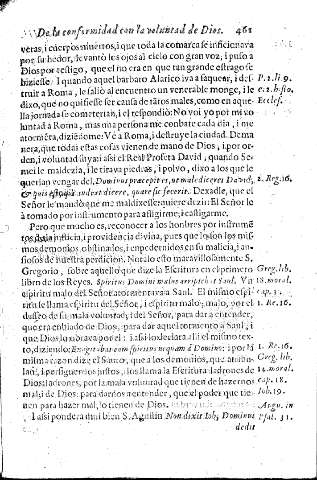 De la conformidad con la voluntad de Dios. 461
veras, i cuerpos muertos, i que toda la comarca se inficionava
por su hedor, levantò los ojos al cielo con gran voz, i puso a
Dios por testigo, que el no era en que tan grande estrago se
hiziesse. I quando aquel barbaro Alarico iva a saquear, i des-
truir a Roma, le saliò al encuentro un venerable monge, i le
dixo, que no quisiesse ser causa de tãtos males, como en aque-
lla jornada se cometerian, i el respondiò: No voi yo por mi vo-
luntad a Roma, mas una persona me combate cada dia, i me
atormenta, diziẽdome: Vè a Roma, i destruye la ciudad. De ma
nera, que todas estas cosas vienen de mano de Dios, i por or-
den, i voluntad suya: assi el Real Profeta David, quando Se-
mei le maldezia, i le tirava piedras, i polvo, dixo a los que le
querian vengar del, Dominus præcepit ei, ut malediceret David,
& quis est qui audeat dicere, quare sic fecerit. Dexadle, que el
Señor le mandò que me maldixesse: quiere dezir: El Señor le
à tomado por instrumento para afligirme, i castigarme.
Pero que mucho es, reconocer a los hombres por instrumẽ
tos de la justicia, i providencia divina, pues que lo son los mis
mos demonios, obstinados, i empedernidos en su malicia, i an-
siosos de nuestra perdicion. Notalo esto maravillosamente S.
Gregorio, sobre aquello que dize la Escritura en el primero
libro de los Reyes. Spiritus Domini malus arripiebat Saul. Un
espiritu malo del Señor atormentava a Saul. El mismo espi-
ritu se llama espiritu del Señor, i espiritu malo; malo, por el
desseo de su mala voluntad; i del Señor, para dar a entender,
que era embiado de Dios, para dar aquel tormento a Saul, i
que Dios lo obrava por el: i assi lo declara alli el mismo tex-
to, diziendo: Exagitabat eum spiritus nequam à Domino: i por la
misma razon dize el Santo, que a los demonios, que atribu-
lan, i persiguen a los justos, los llama la Escritura ladrones de
Dios: ladrones, por la mala voluntad que tienen de hazernos
mal; i de Dios, para darnos a entender, que el poder que tie-
nen para hazer mal, lo tienen de Dios.
I assi pondera mui bien S. Agustin Non dixit Iob, Dominus
dedit
P. 2. li. 9.
c. 2. histo.
Ecclef.
2. Reg. 16.
Greg. lib.
18. moral.
cap. 3.
1. Re. 16.
1. Re. 16.
Greg. lib.
14. moral.
cap. 18.
Iob. 19.
Augu. in
Psal. 31.